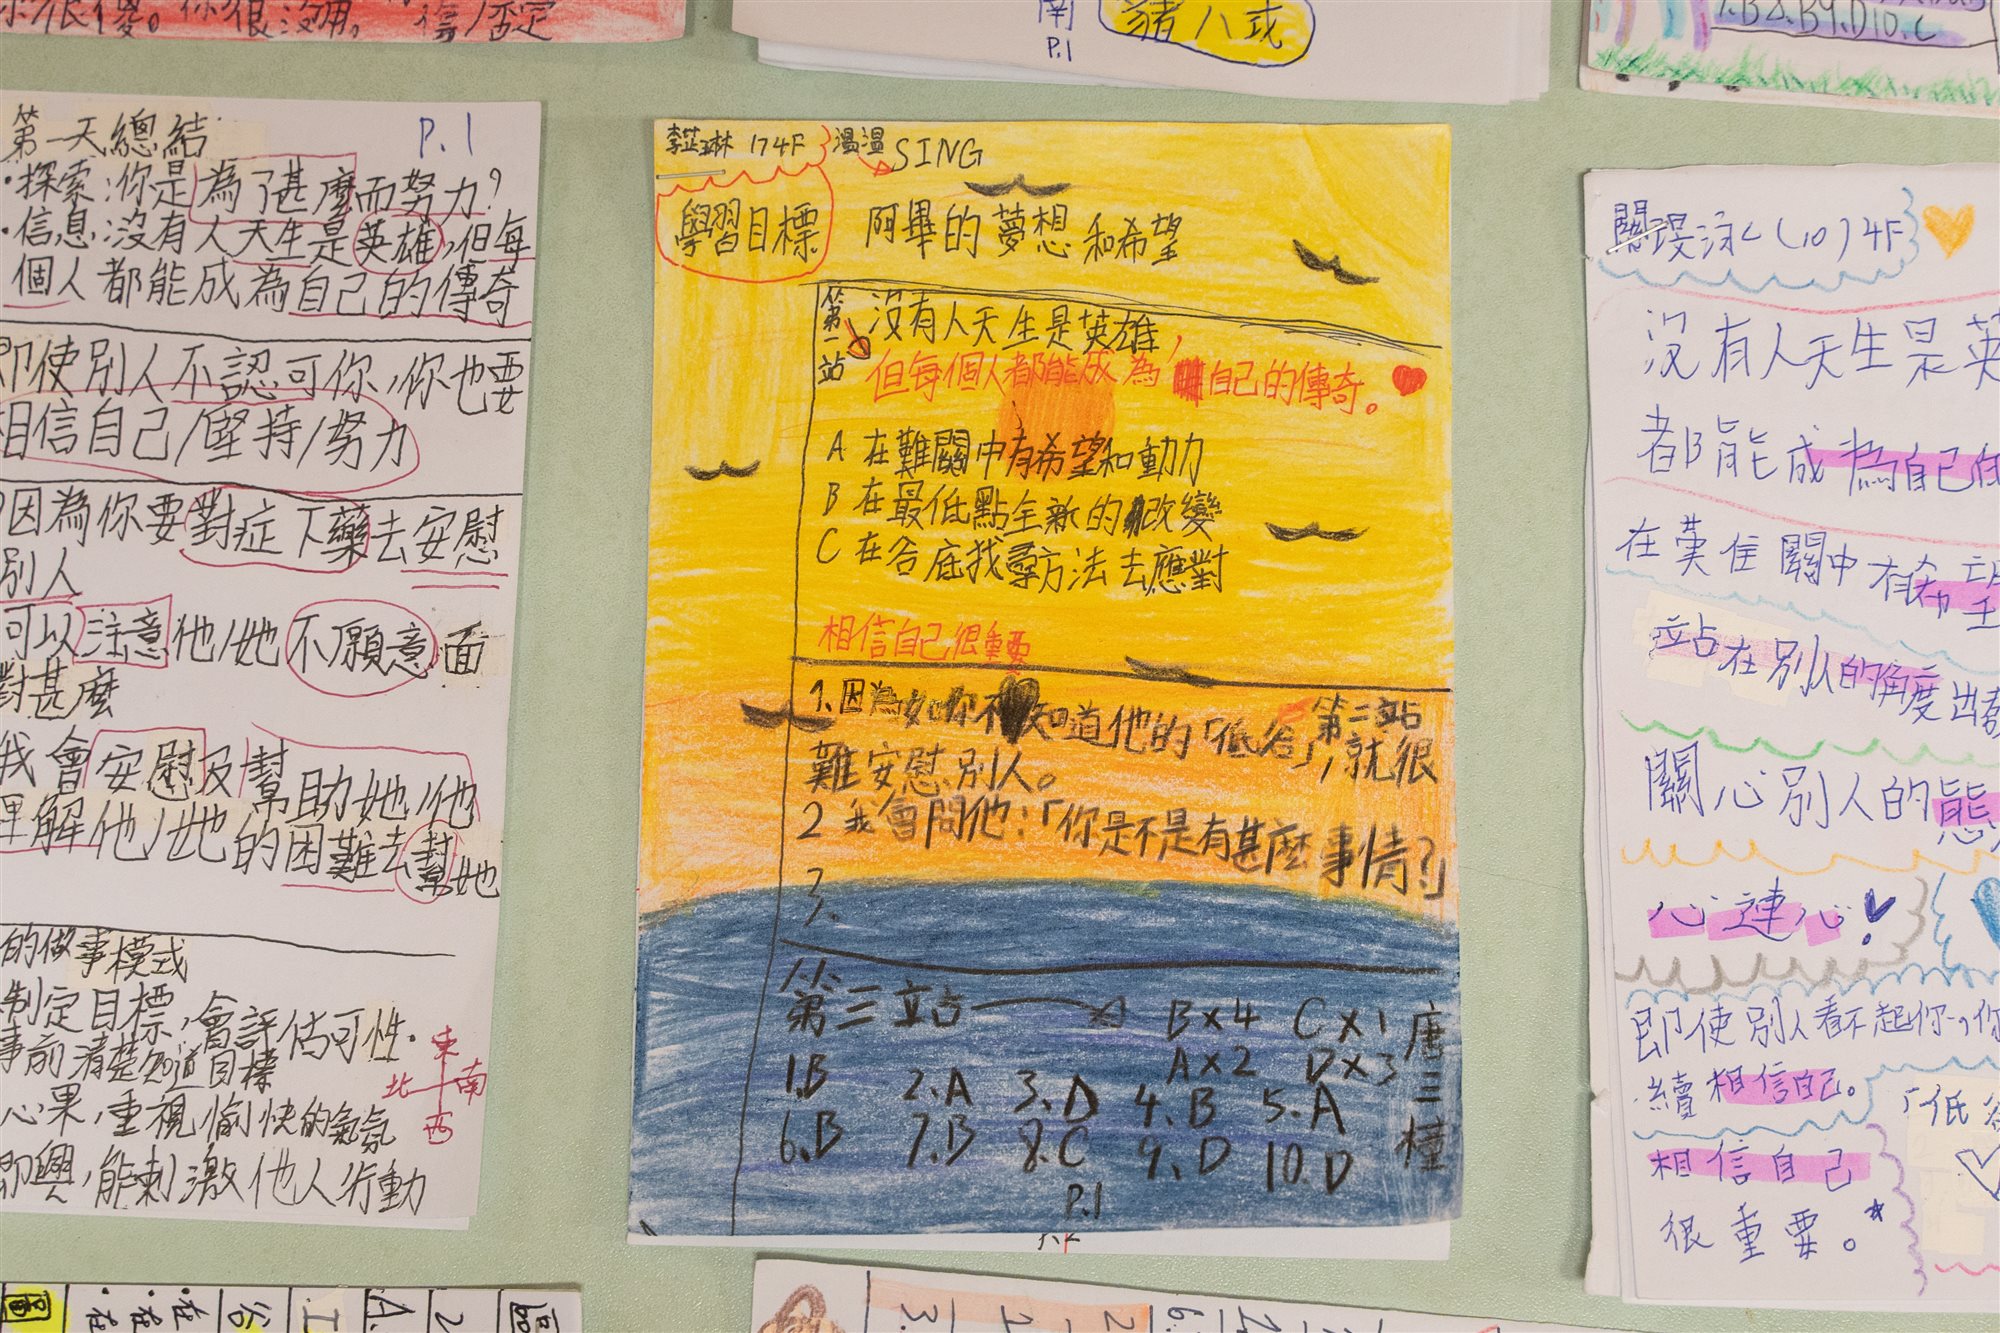 你很傻。你很沒用。
否定
南
P.1
豬八戒
7.B 8.B 9.D 10.C
第一天總結
P.1
·探索:你是為了甚麼而努力?
·信息:沒有人天生是英雄,但每
個人都能成為自己的傳奇
即使別人不認可你,你也要
相信自己/堅持/努力
因為你要對症下藥去安慰
別人
可以注意他/她不願意面
對甚麼
我會安慰及幫助她/他
理解他/她的困難去幫她
的做事模式
制定目標,會評估可性.
事前清楚知道目標
心果,重視愉快的氣氛
即興,能刺激他人行動
東
北
南
西
李芷琳 17 4F
溫溫 SING
學習目標
阿畢的夢想和希望
第一站
沒有人天生是英雄,
但每個人都能成為自己的傳奇。
A 在難關中有希望和動力
B 在最低點全新的改變
C 在谷底找尋方法去應對
相信自己很重要
第二站
1.因為如你不知道他的「低谷」,就很
難安慰別人。
2 我會問他:「你是不是有甚麼事情?」
3.
第三站
B×4 C×1
A×2 D×3
唐三樟
1.B 2.A 3.D 4.B 5.A
6.B 7.B 8.C 9.D 10.D
P.1
(10) 4F
沒有人天生是英
都能成為自己的
關中有希望
站在別人的角度出發
關心別人的態
心連心!
即使別人看不起你,你
續相信自己。
「低谷
相信自己
很重要。